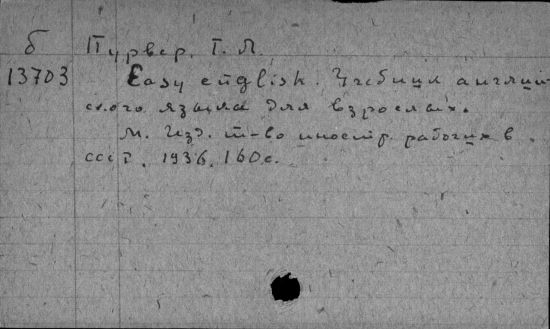 б Пурвер, Т. Л.
13703 Easy english. Учебник англий-
ского языка для взрослых.
М. Изд. т-во иностр. рабочих в
СССР, 1936, 160с.